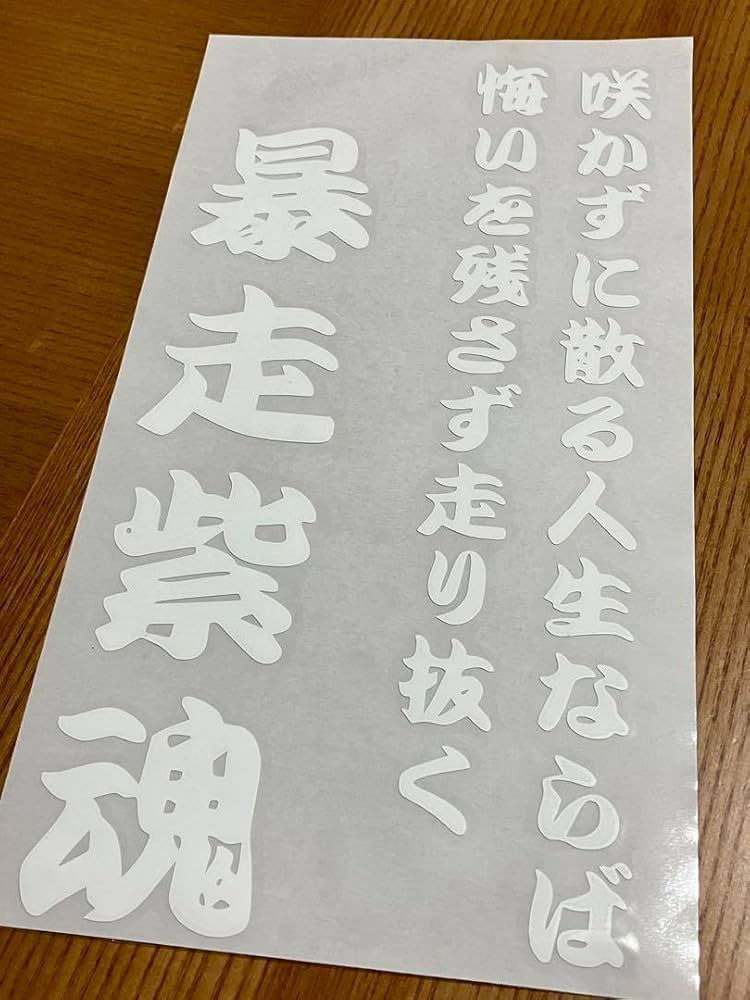 咲かずに散る人生ならば
悔いを残さず走り抜く
暴走紫魂